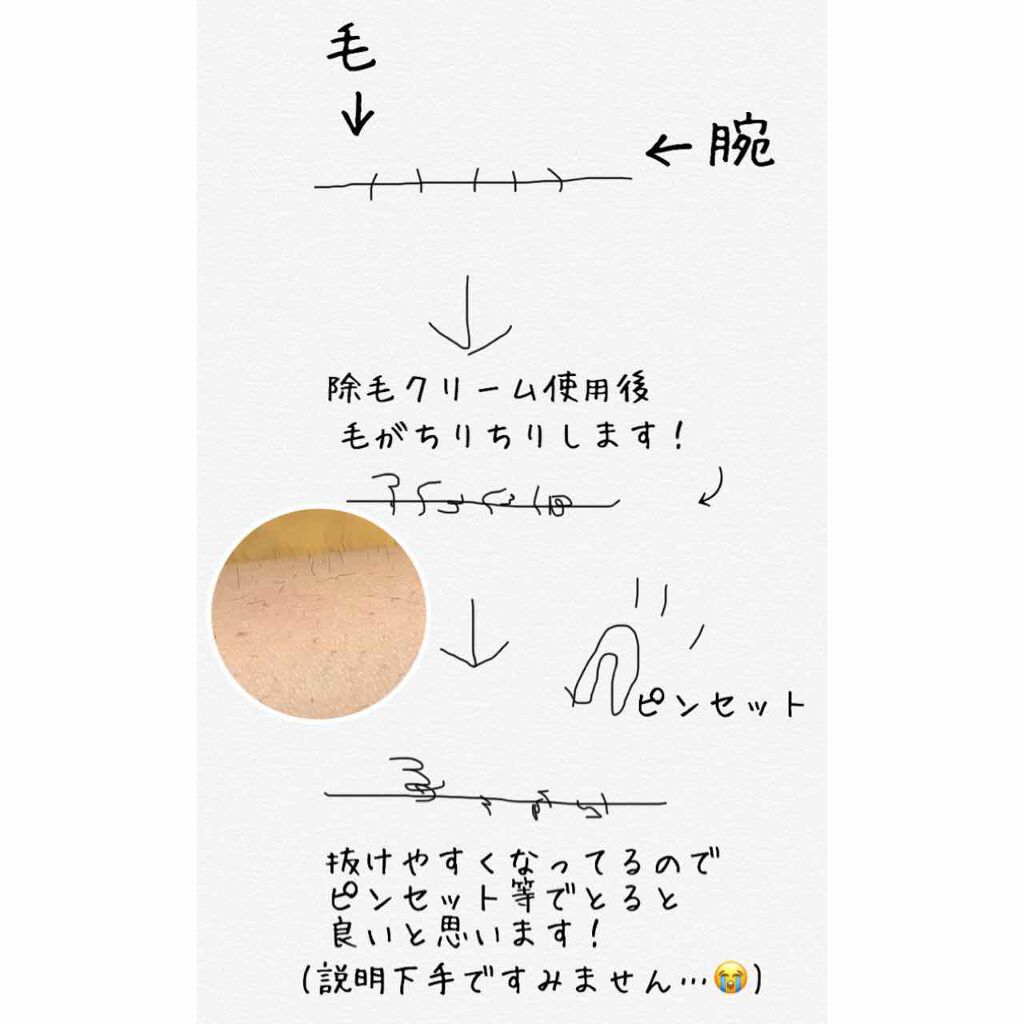 毛
↓
←腕
除毛クリーム使用後
毛がちりちりします!
ピンセット
抜けやすくなってるので
ピンセット等でとると
良いと思います!
(説明下手ですみません…😭)